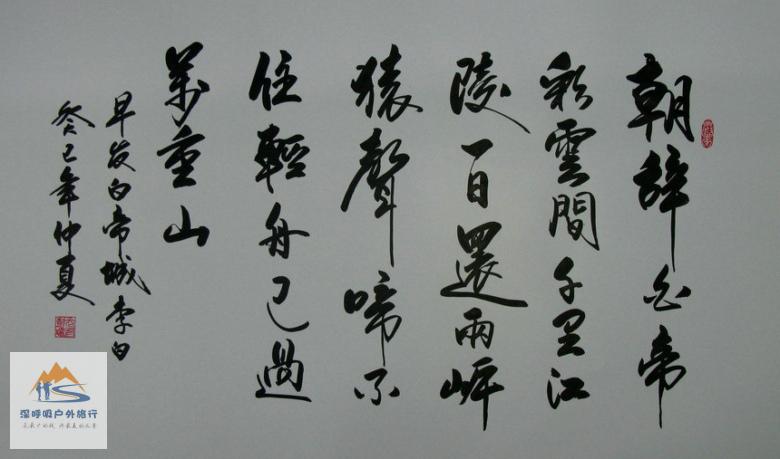 朝辭白帝
彩雲間千里江
陵一日還兩岸
猿聲啼不
住輕舟已過
萬重山
早发白帝城李白
癸巳年仲夏
深呼吸户外旅行